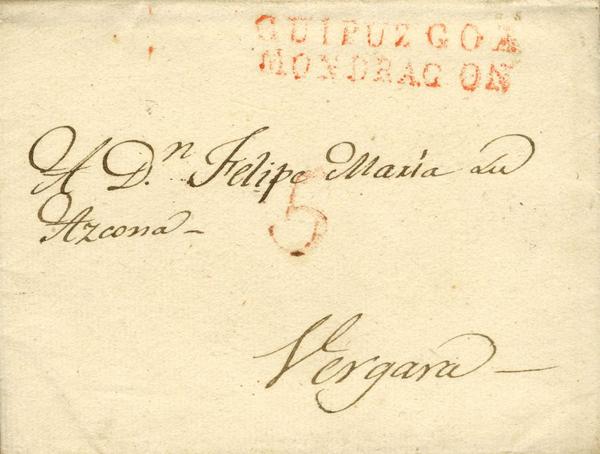 GUIPUZGOA
MONDRAGON
A D.n Felipe Maria de
Azcona
5
Vergara